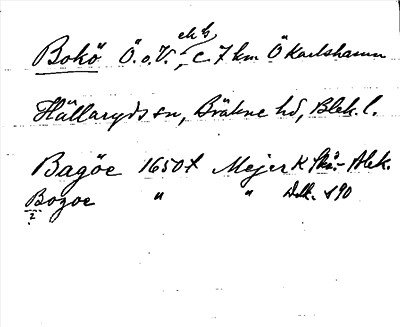 Bokö Ö. o. V., c 7 km Ö Karlshamn
Hällaryds sn, Bräkne hd, Blek. l.
Bagöe 1650t Mejer K Skå.- Blek.
Bozoe " " Dtk. 190
z